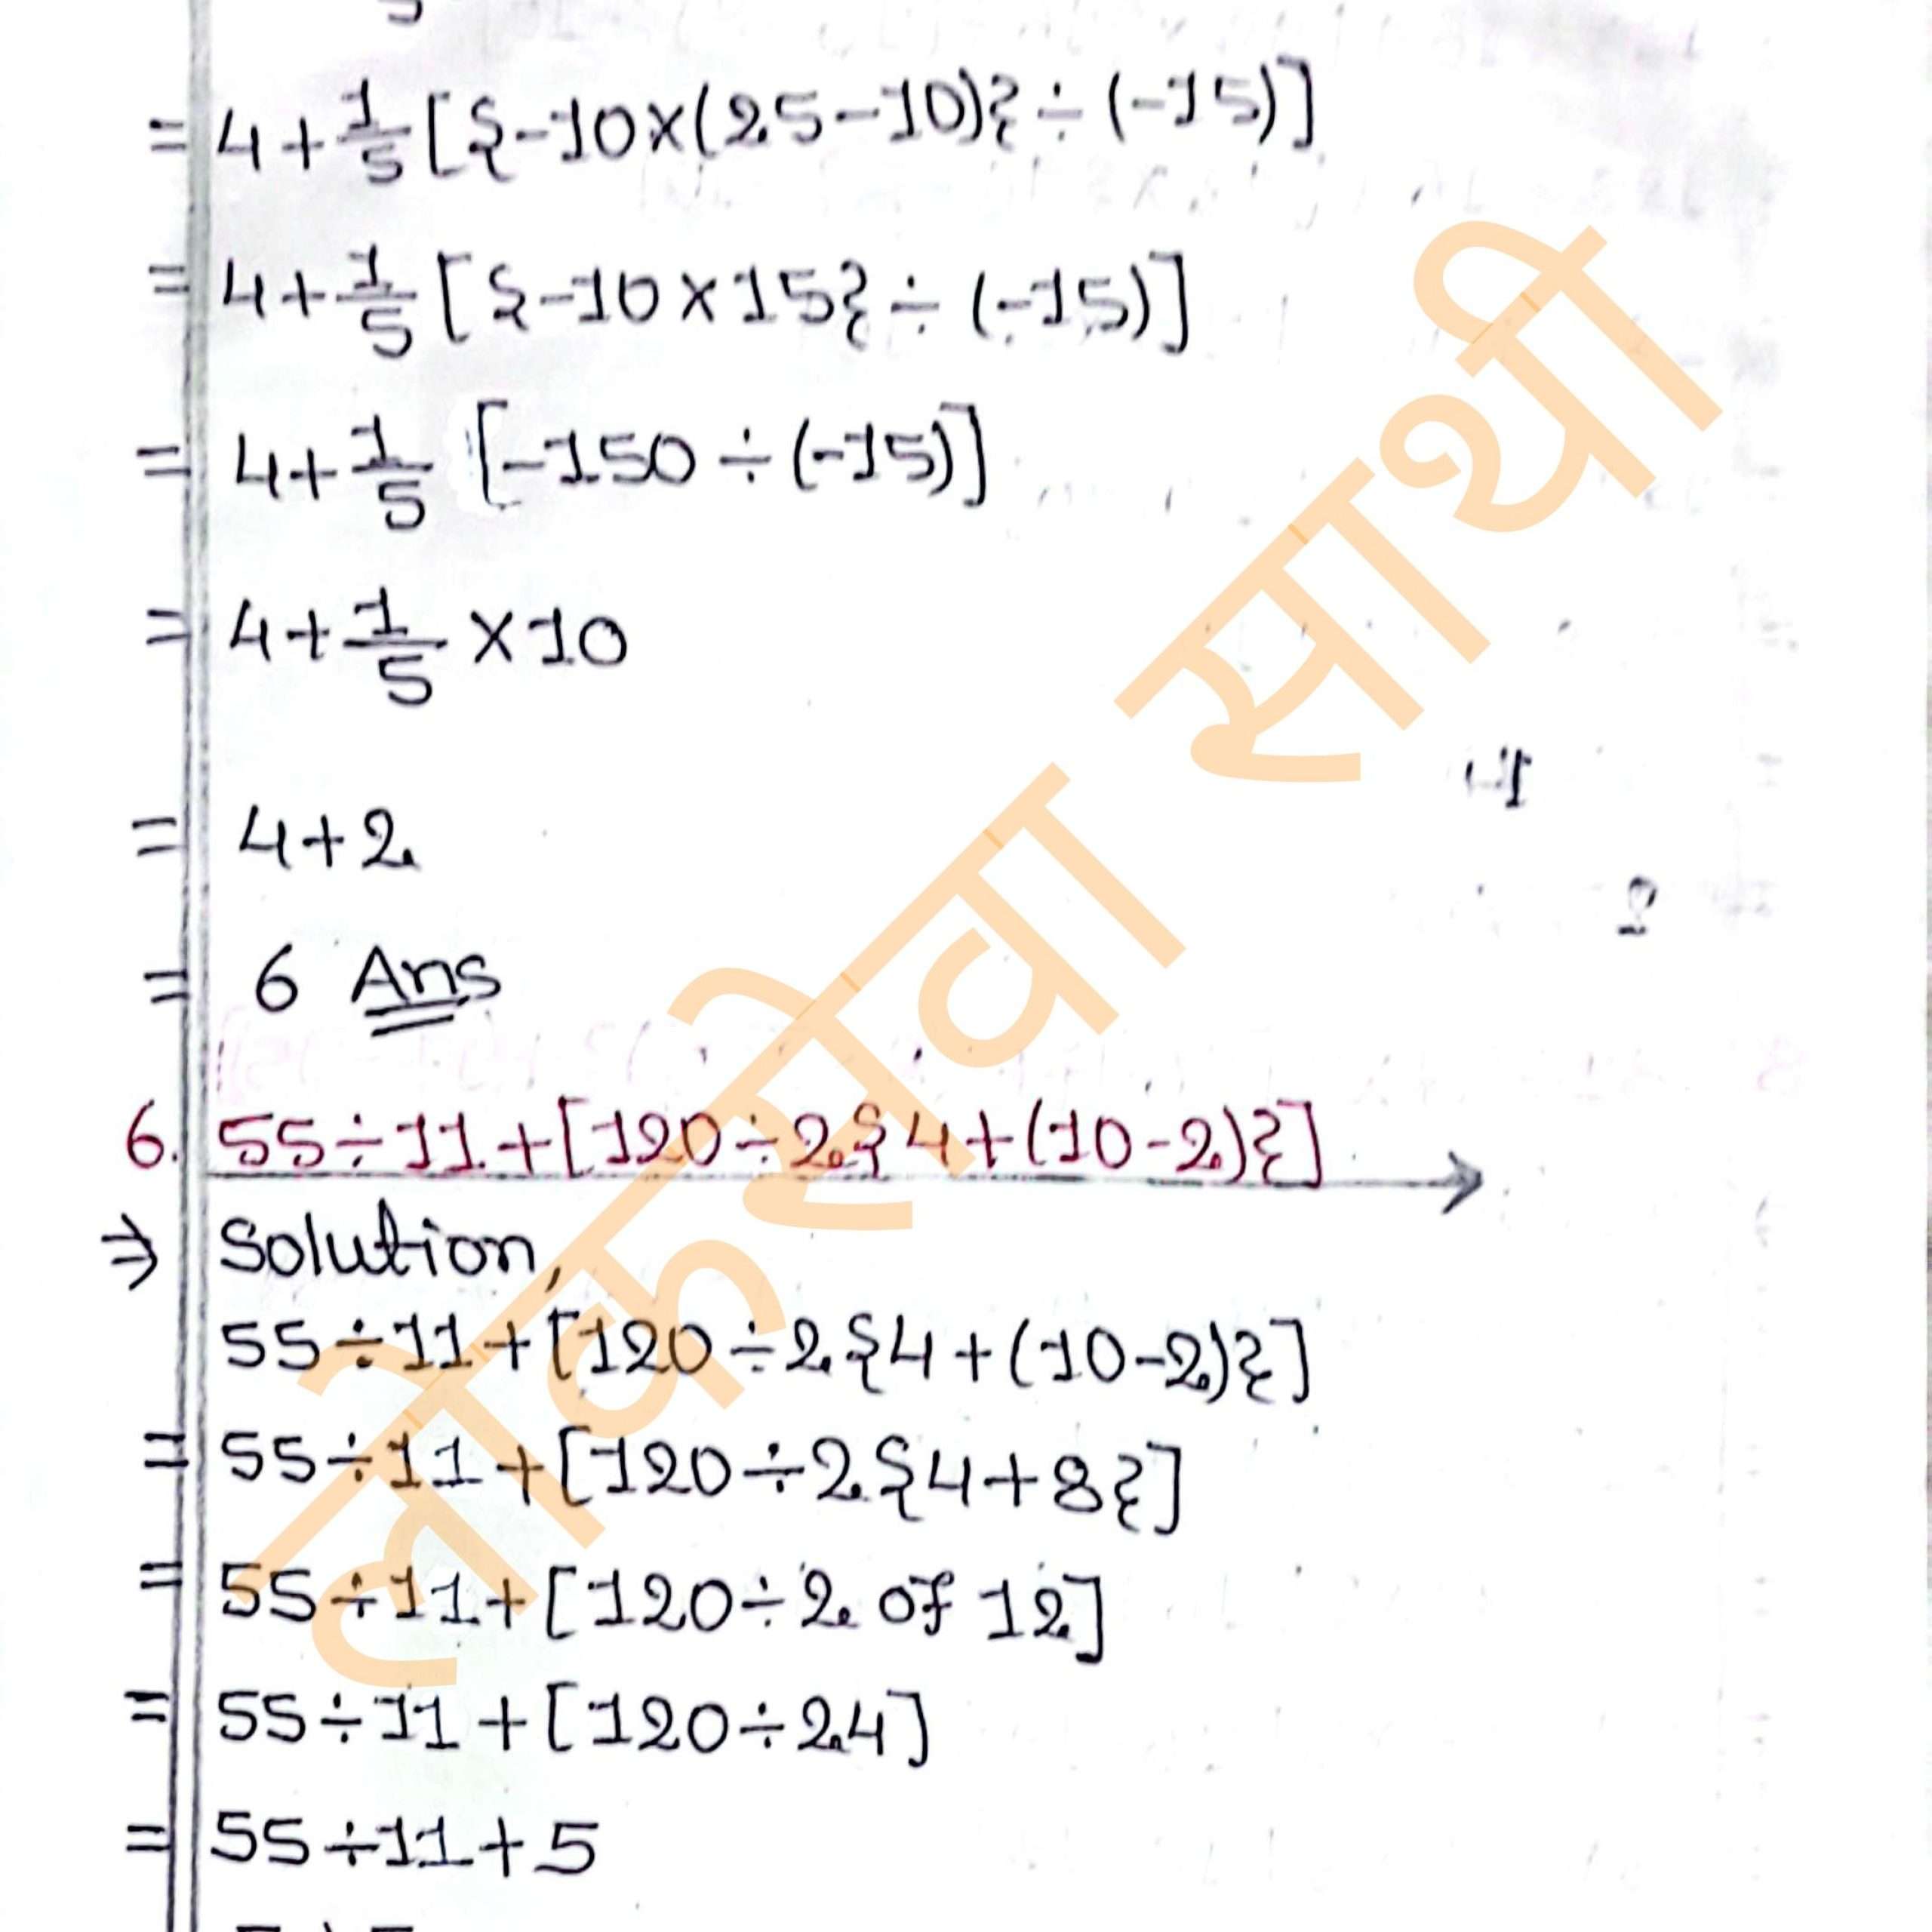 = 4+1/5[{-10×(25-10)}÷(-15)]
= 4+1/5[{-10×15}÷(-15)]
= 4+1/5[-150÷(-15)]
= 4+1/5×10
= 4+2
= 6 Ans
6. 55÷11+[120÷2{4+(10-2)}]
⇒ Solution,
55÷11+[120÷2{4+(10-2)}]
= 55÷11+[120÷2{4+8}]
= 55÷11+[120÷2 of 12]
= 55÷11+[120÷24]
= 55÷11+5
लोकसेवा साथी